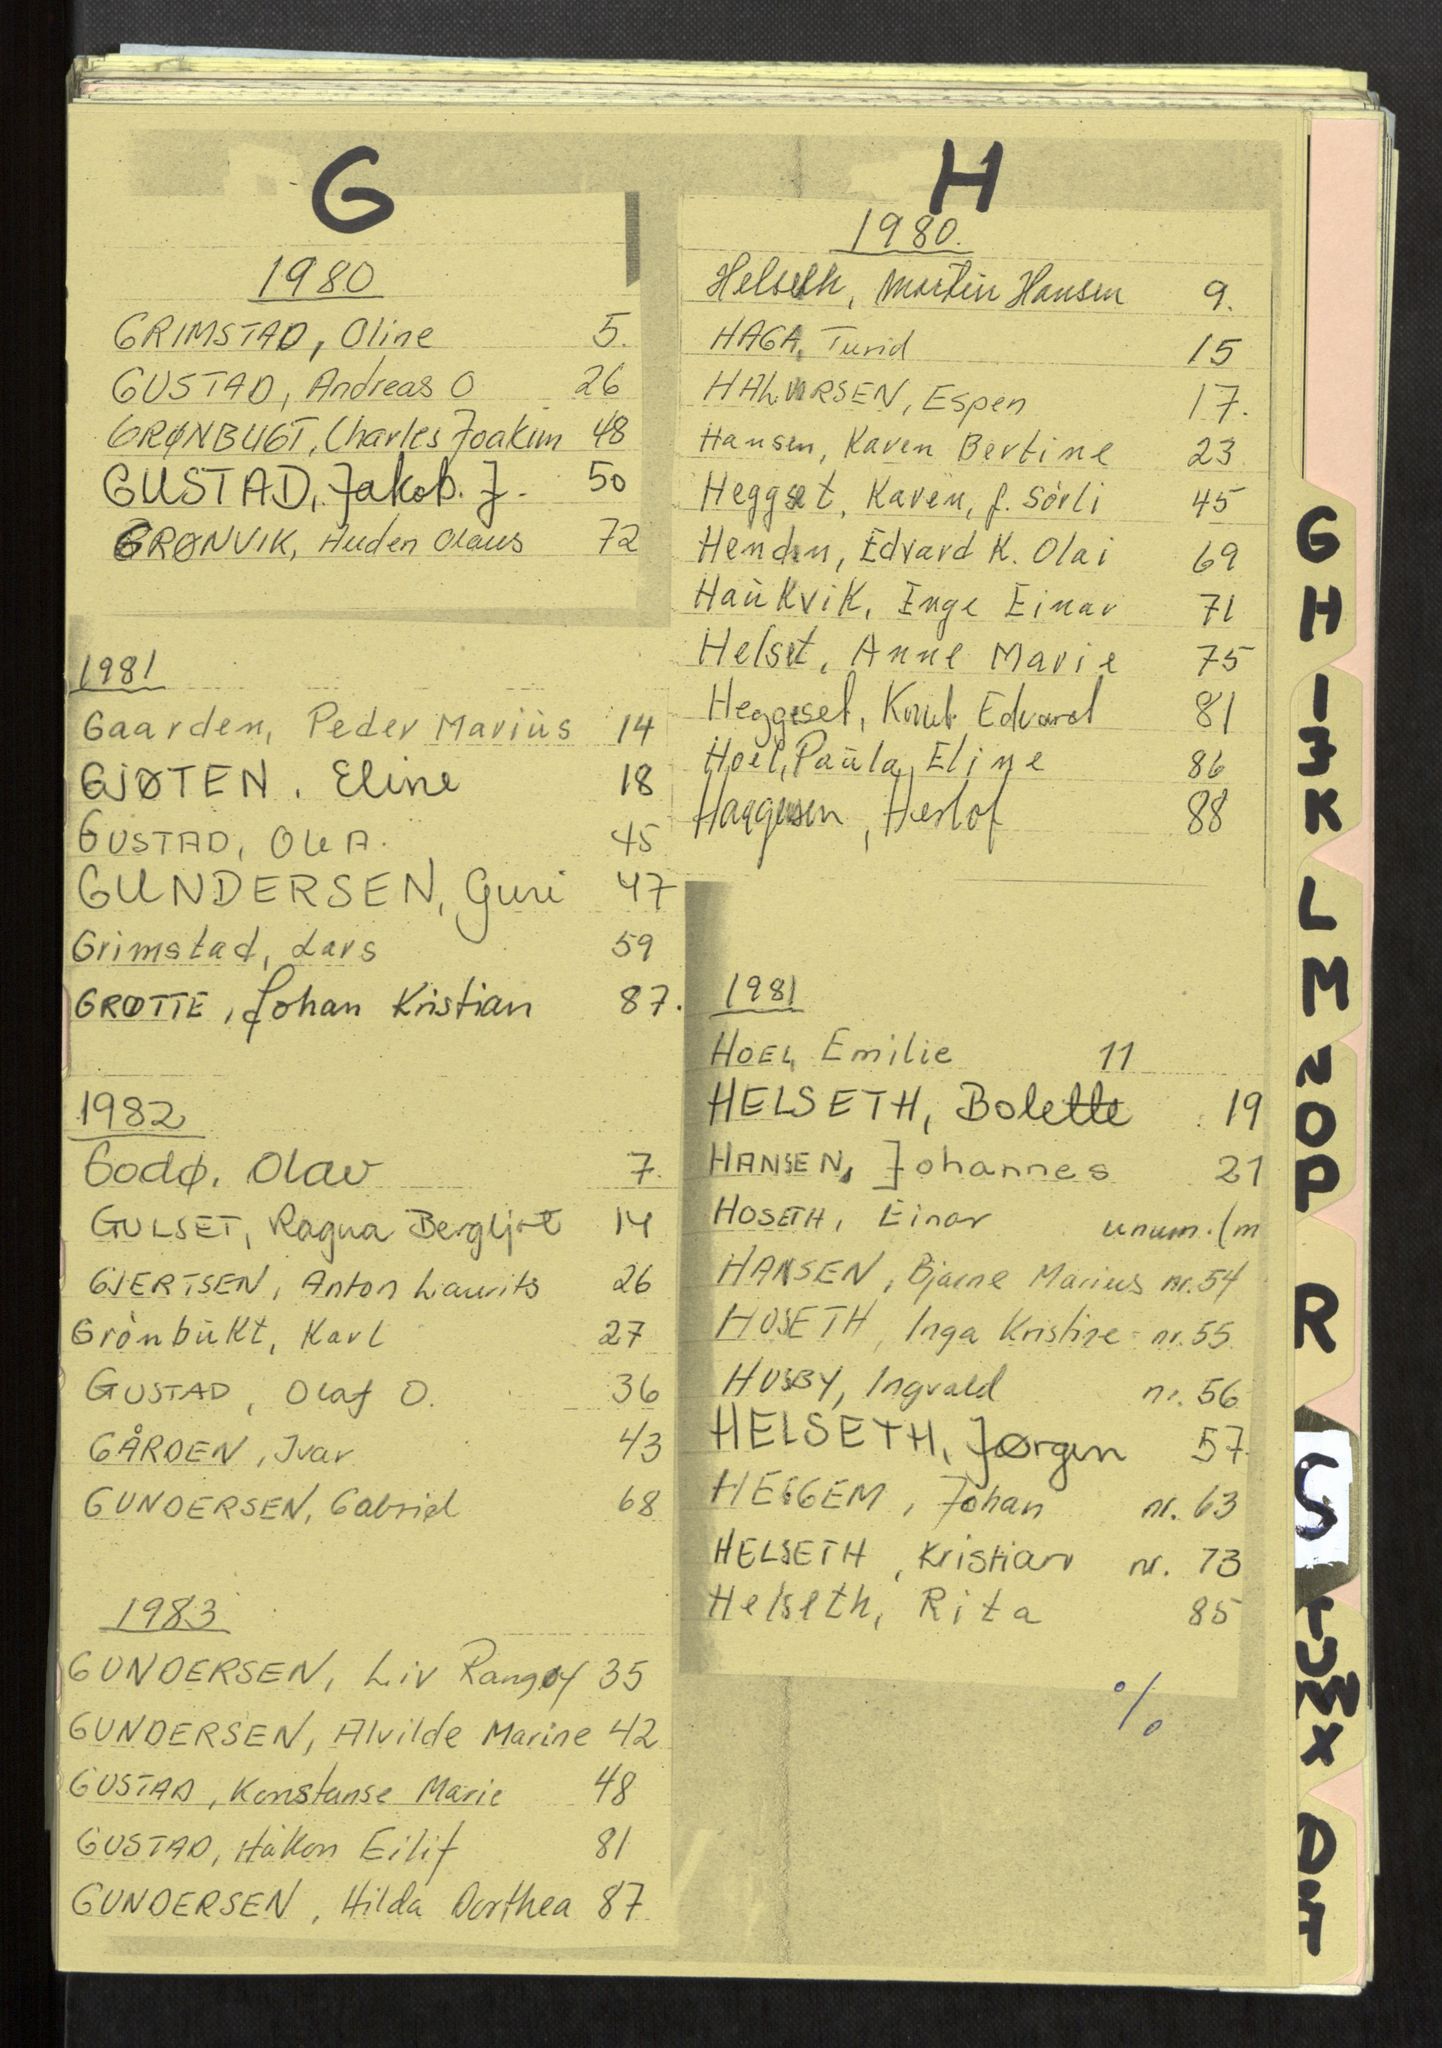 G
1980
GRIMSTAD, Oline 5.
GUSTAD, Andreas O 26
GRØNBUGT, Charles Joakim 48
GUSTAD, Jakob. J. 50
GRØNVIK, Olaus 72
1981
Gaarden, Peder Marius 14
GJØTEN, Eline 18
GUSTAD, Ole A. 45
GUNDERSEN, Guri 47
Grimstad, Lars 59
GRØTTE, Johan Kristian 87.
1982
Godø, Olav 7.
GULSET, Ragna Bergljot 14
GJERTSEN, Anton Laurits 26
Grönbukt, Karl 27
GUSTAD, Olaf O. 36
GÅRDEN, Ivar 43
GUNDERSEN, Gabriel 68
1983
GUNDERSEN, Liv Rangøy 35
GUNDERSEN, Alvilde Marine 42
GUSTAD, Konstanse Marie 48
GUSTAD, Håkon Eilif 81
GUNDERSEN, Hilda Dorthea 87
H
1980.
Helseth, Martin Hansen 9.
HAGA, Turid 15
HALVORSEN, Espen 17.
Hansen, Karen Bertine 23
Heggset, Karen, f. Sörli 45
Henden, Edvard K. Olai 69
Haukvik, Inge Einar 71
Helset, Anne Marie 75
Heggeset, Knut Edvard 81
Hoel, Paula Eline 86
Haggensen, Herlof 88
1981
HOEL, Emilie 11
HELSETH, Bolette 19
HANSEN, Johannes 21
HOSETH, Einar unum. /m
HANSEN, Bjarne Marius nr. 54
HOSETH, Inga Kristine nr. 55
HUSBY, Ingvald nr. 56
HELSETH, Jørgen 57
HEGGEM, Johan nr. 63
HELSETH, Kristian nr. 73
Helseth, Rita 85
%
G
H
I
J
K
L
M
N
O
P
R
S
T
U
W
X